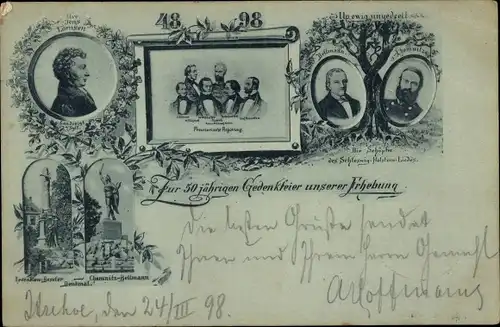 Uwe
Jens
Lornsen
48 98
Provisorische Regierung
Up ewig ungedeelt
Bellmann
Chemnitz
Die Schöpfer
des Schleswig-Holstein-Liedes.
Zur 50 jährigen Gedenkfeier unserer Erhebung
Denkmal.
Chemnitz-Bellmann
Die besten Grüße sendet
Ihnen und Ihrem Herrn Gemahl
Itzehoe, den 24/III 98.